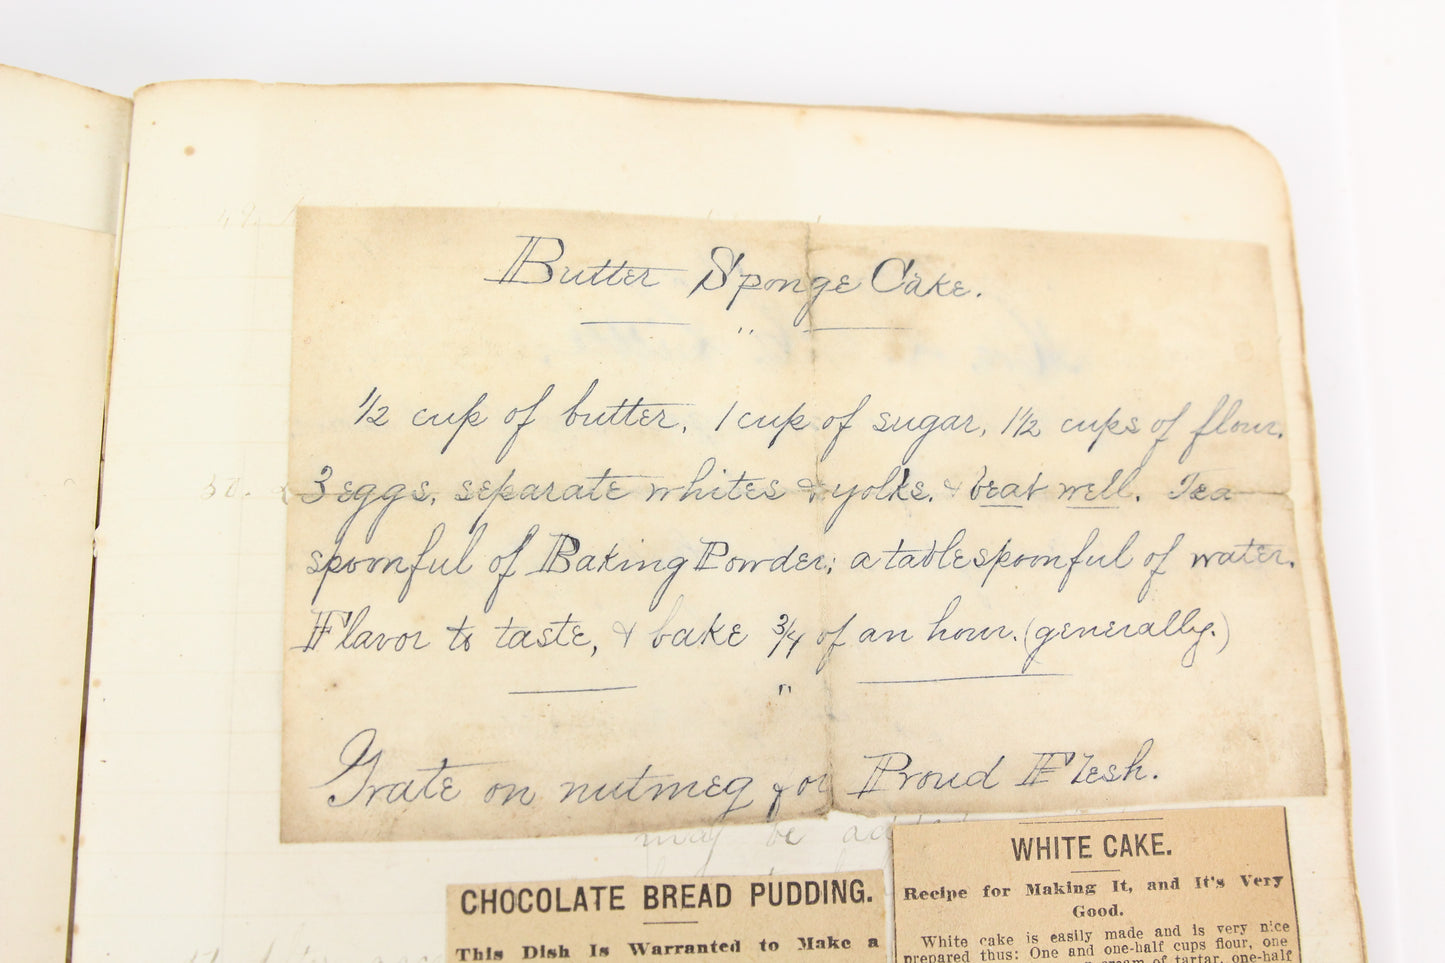 Butter Sponge Cake.
1/2 cup of butter, 1 cup of sugar, 1 1/2 cups of flour.
3 eggs, separate whites & yolks, & beat well. Tea
spoonful of Baking Powder; a tablespoonful of water.
Flavor to taste, & bake 3/4 of an hour. (generally.)
Grate on nutmeg for Proud Flesh.
may be
WHITE CAKE.
Recipe for Making It, and It's Very
Good.
White cake is easily made and is very nice
prepared thus: One and one-half cups flour, one
cream of tartar, one-half
CHOCOLATE BREAD PUDDING.
This Dish Is Warranted to Make a